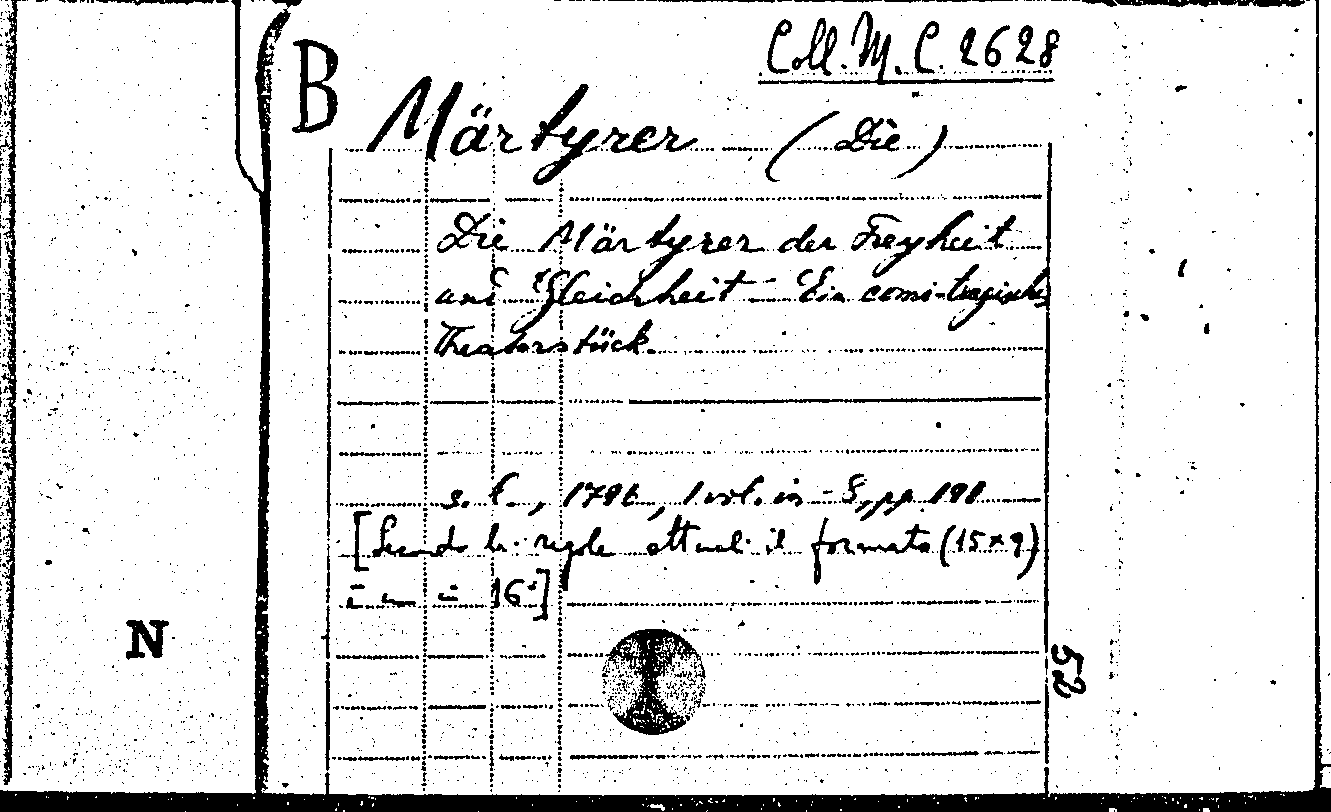 Coll. M. C. 2628
B
Märtyrer — (Die)
Die Märtyrer der Freyheit
und Gleichheit - Ein comi-tragisches
Theaterstück.
s. l., 1796, 1 vol. in - 8, pp. 191
[Secondo le regole attuali il formato (15×9)
è un in 16°]
N
52